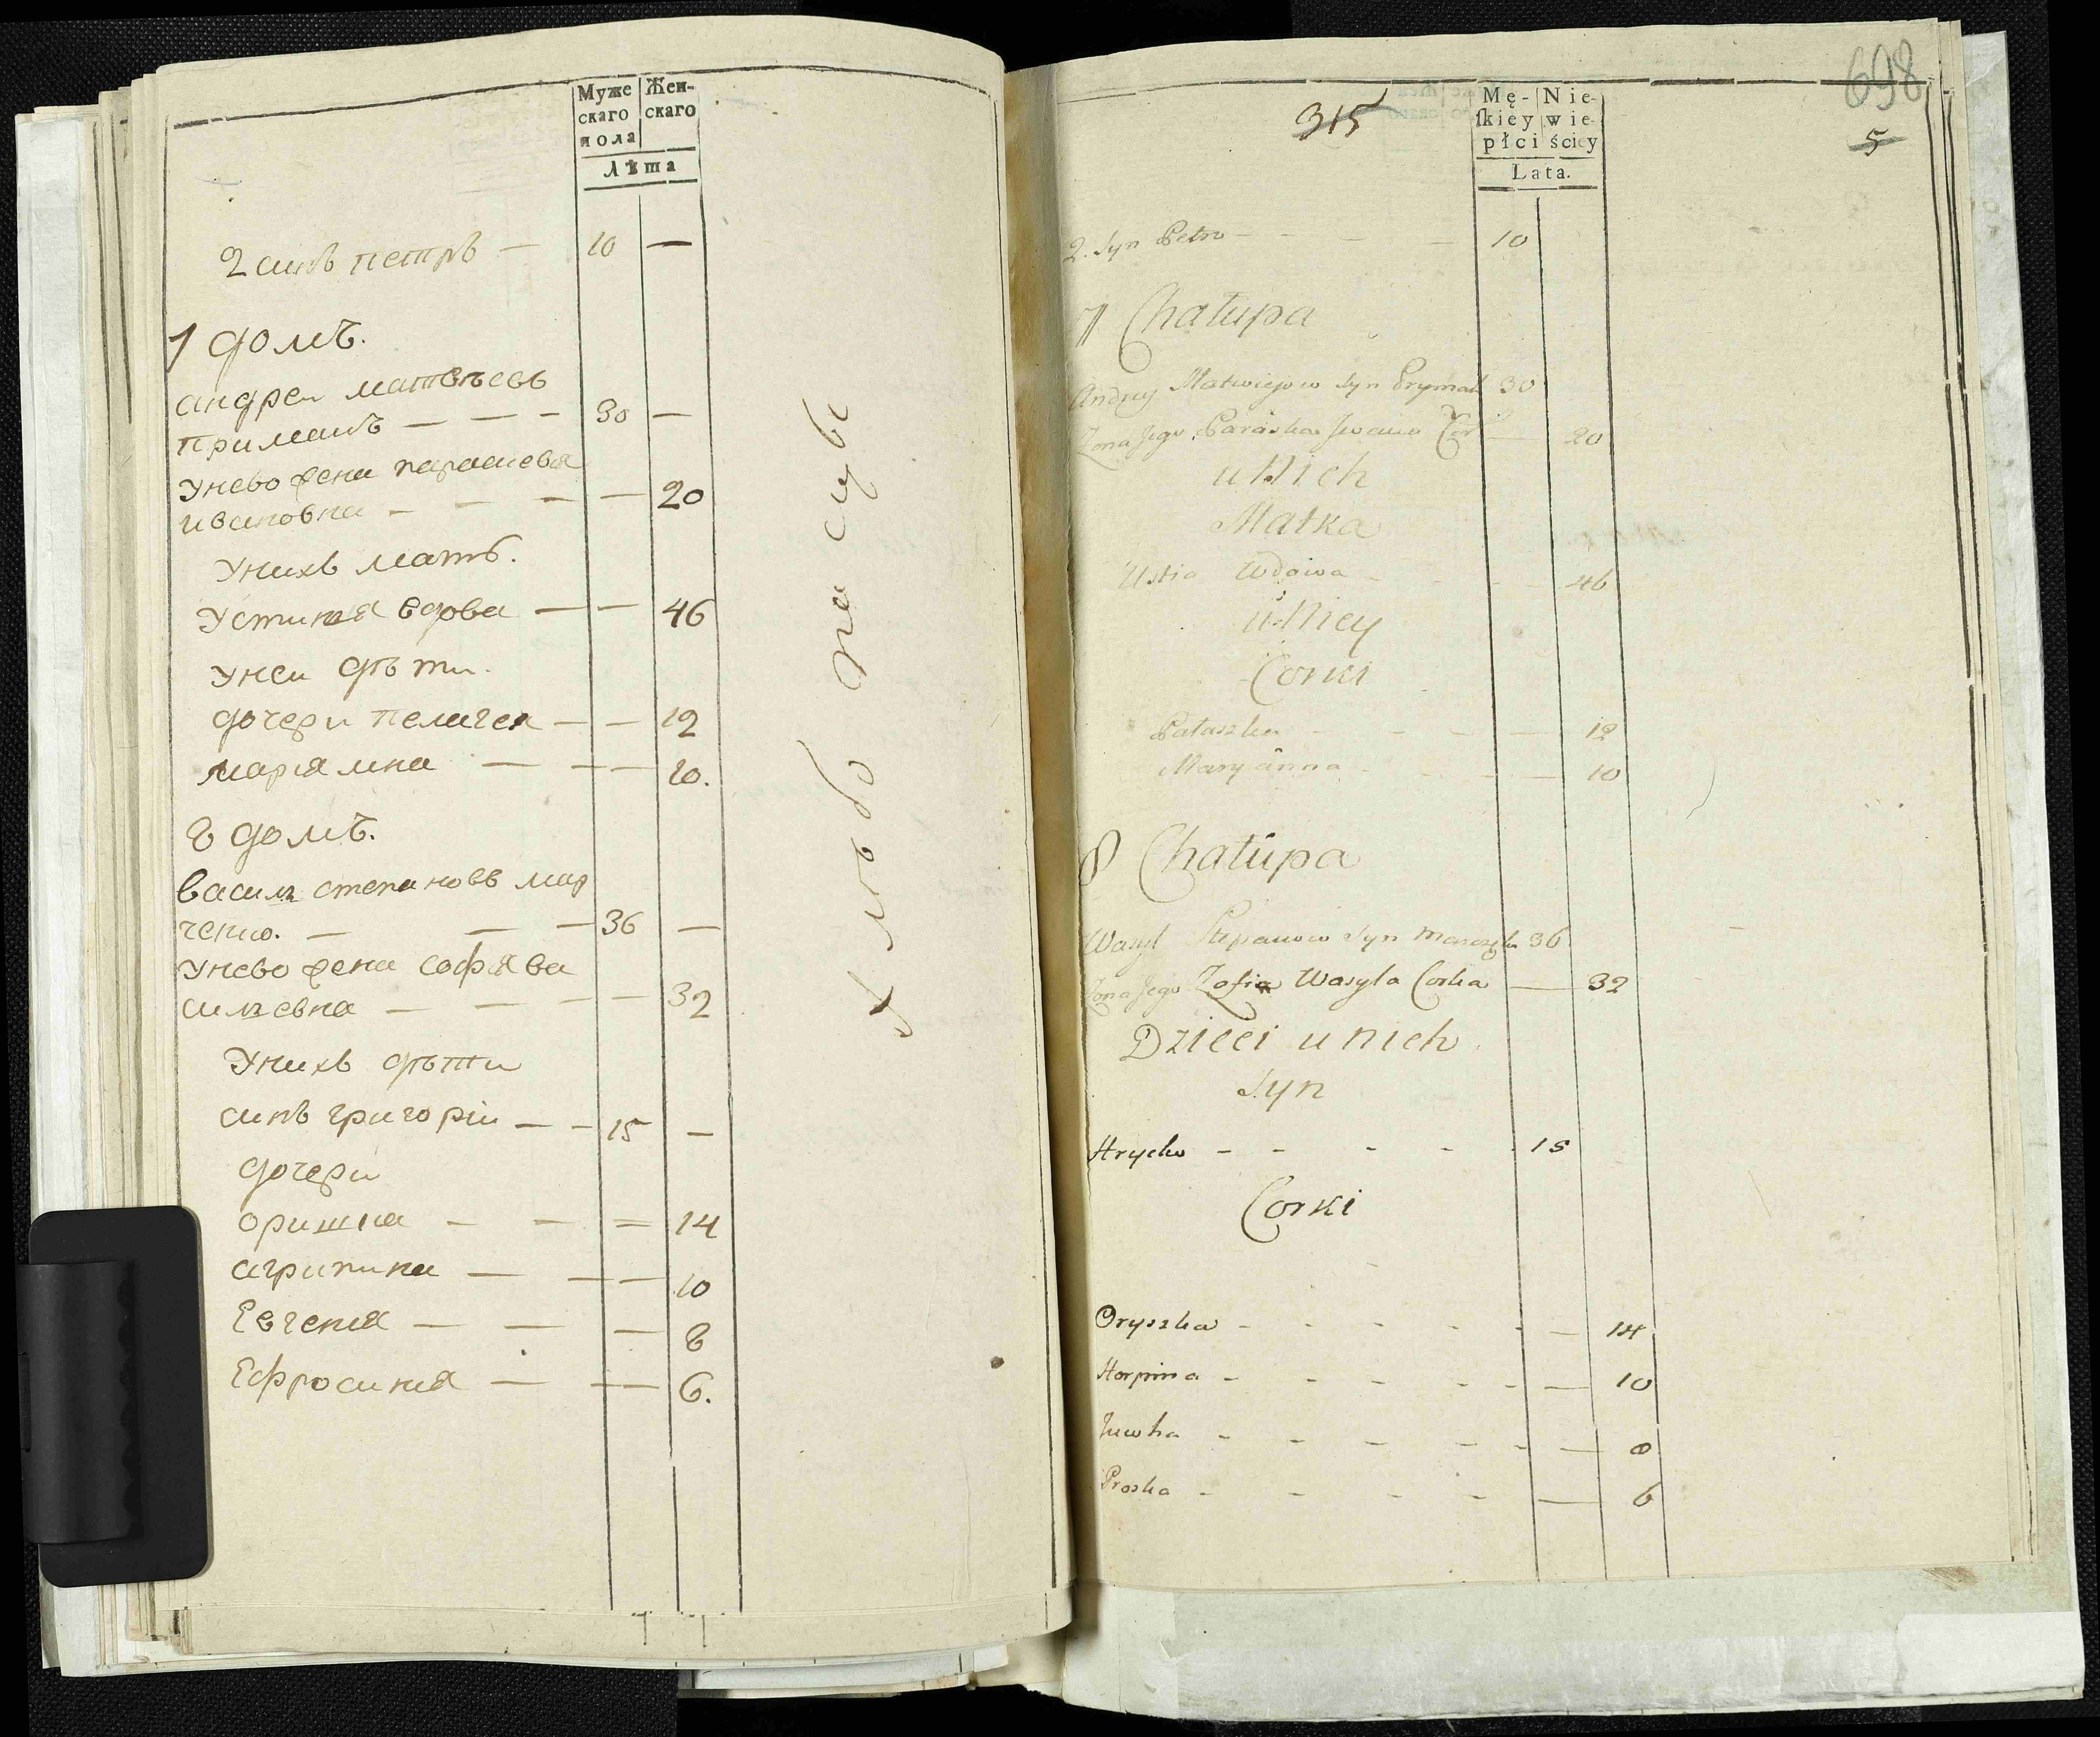 Муже
скаго
пола
Жен-
скаго
Лѣта
2 синъ петръ — 10 —
7 домъ.
андреи матвѣевъ
примакъ — — — 30 —
унево жена парасцева
ивановна — — — — 20
унихъ мать.
Устиния вдова — — 46
унеи дѣти.
дочери пелагея — — 12
мариямна — — — 10.
8 домъ.
василь степановъ мар
ченко. — — — 36 —
унево жена софия ва
сильевна — — — — 32
унихъ дѣти
синъ григорiи — — 15 —
дочери
оришка — — = 14
агрипина — — — 10
Евгения — — — 8
Ефросиния — — — 6.
698
315
5
Mę-
skiey
płci
Nie-
wie-
ściey
Lata.
2. Syn Petro — 10
7 Chałupa
Andrey Matwiejow Syn Prymak 30
Zona Jego Paraska Iwana Cor — 20
u Nich
Matka
Ustia Wdowa — 46
u Niey
Corki
Pałaszka — 12
Maryanna — 10
8 Chałupa
Wasyl Stepanow Syn 36
Zona Jego Zofia Wasyla Corka — 32
Dzieci u nich
Syn
Hrycko - - - - 15
Corki
Oryszka - - - - - — 14
Horpina - - - - - — 10
Juwka - - - - - — 8
Proska - - - - — 6